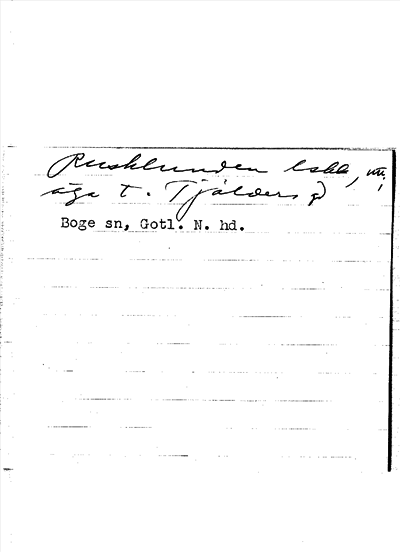 Rusklunden
äga t. Tjälders
Boge sn, Gotl. N. hd.